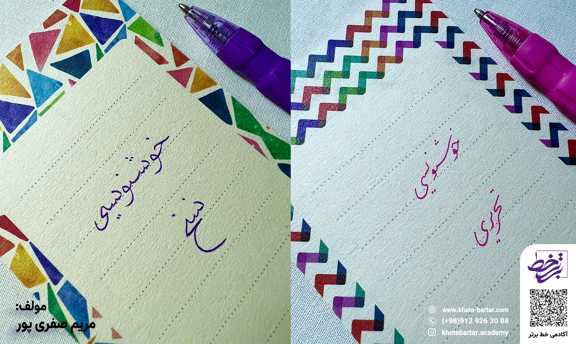 خوشنویسی
نسخ
خوشنویسی
تحریری
مولف:
مریم صفری پور
www.khate-bartar.com
(+98)912 926 30 88
khatebartar.academy
خط برتر
آکادمی خط برتر